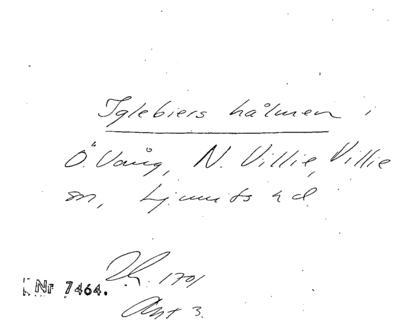 Iglebiers hålmen i
Ö. Vång, N. Villie, Villie
sn, Ljunits hd.
1701
Nr 7464.
Akt 3.